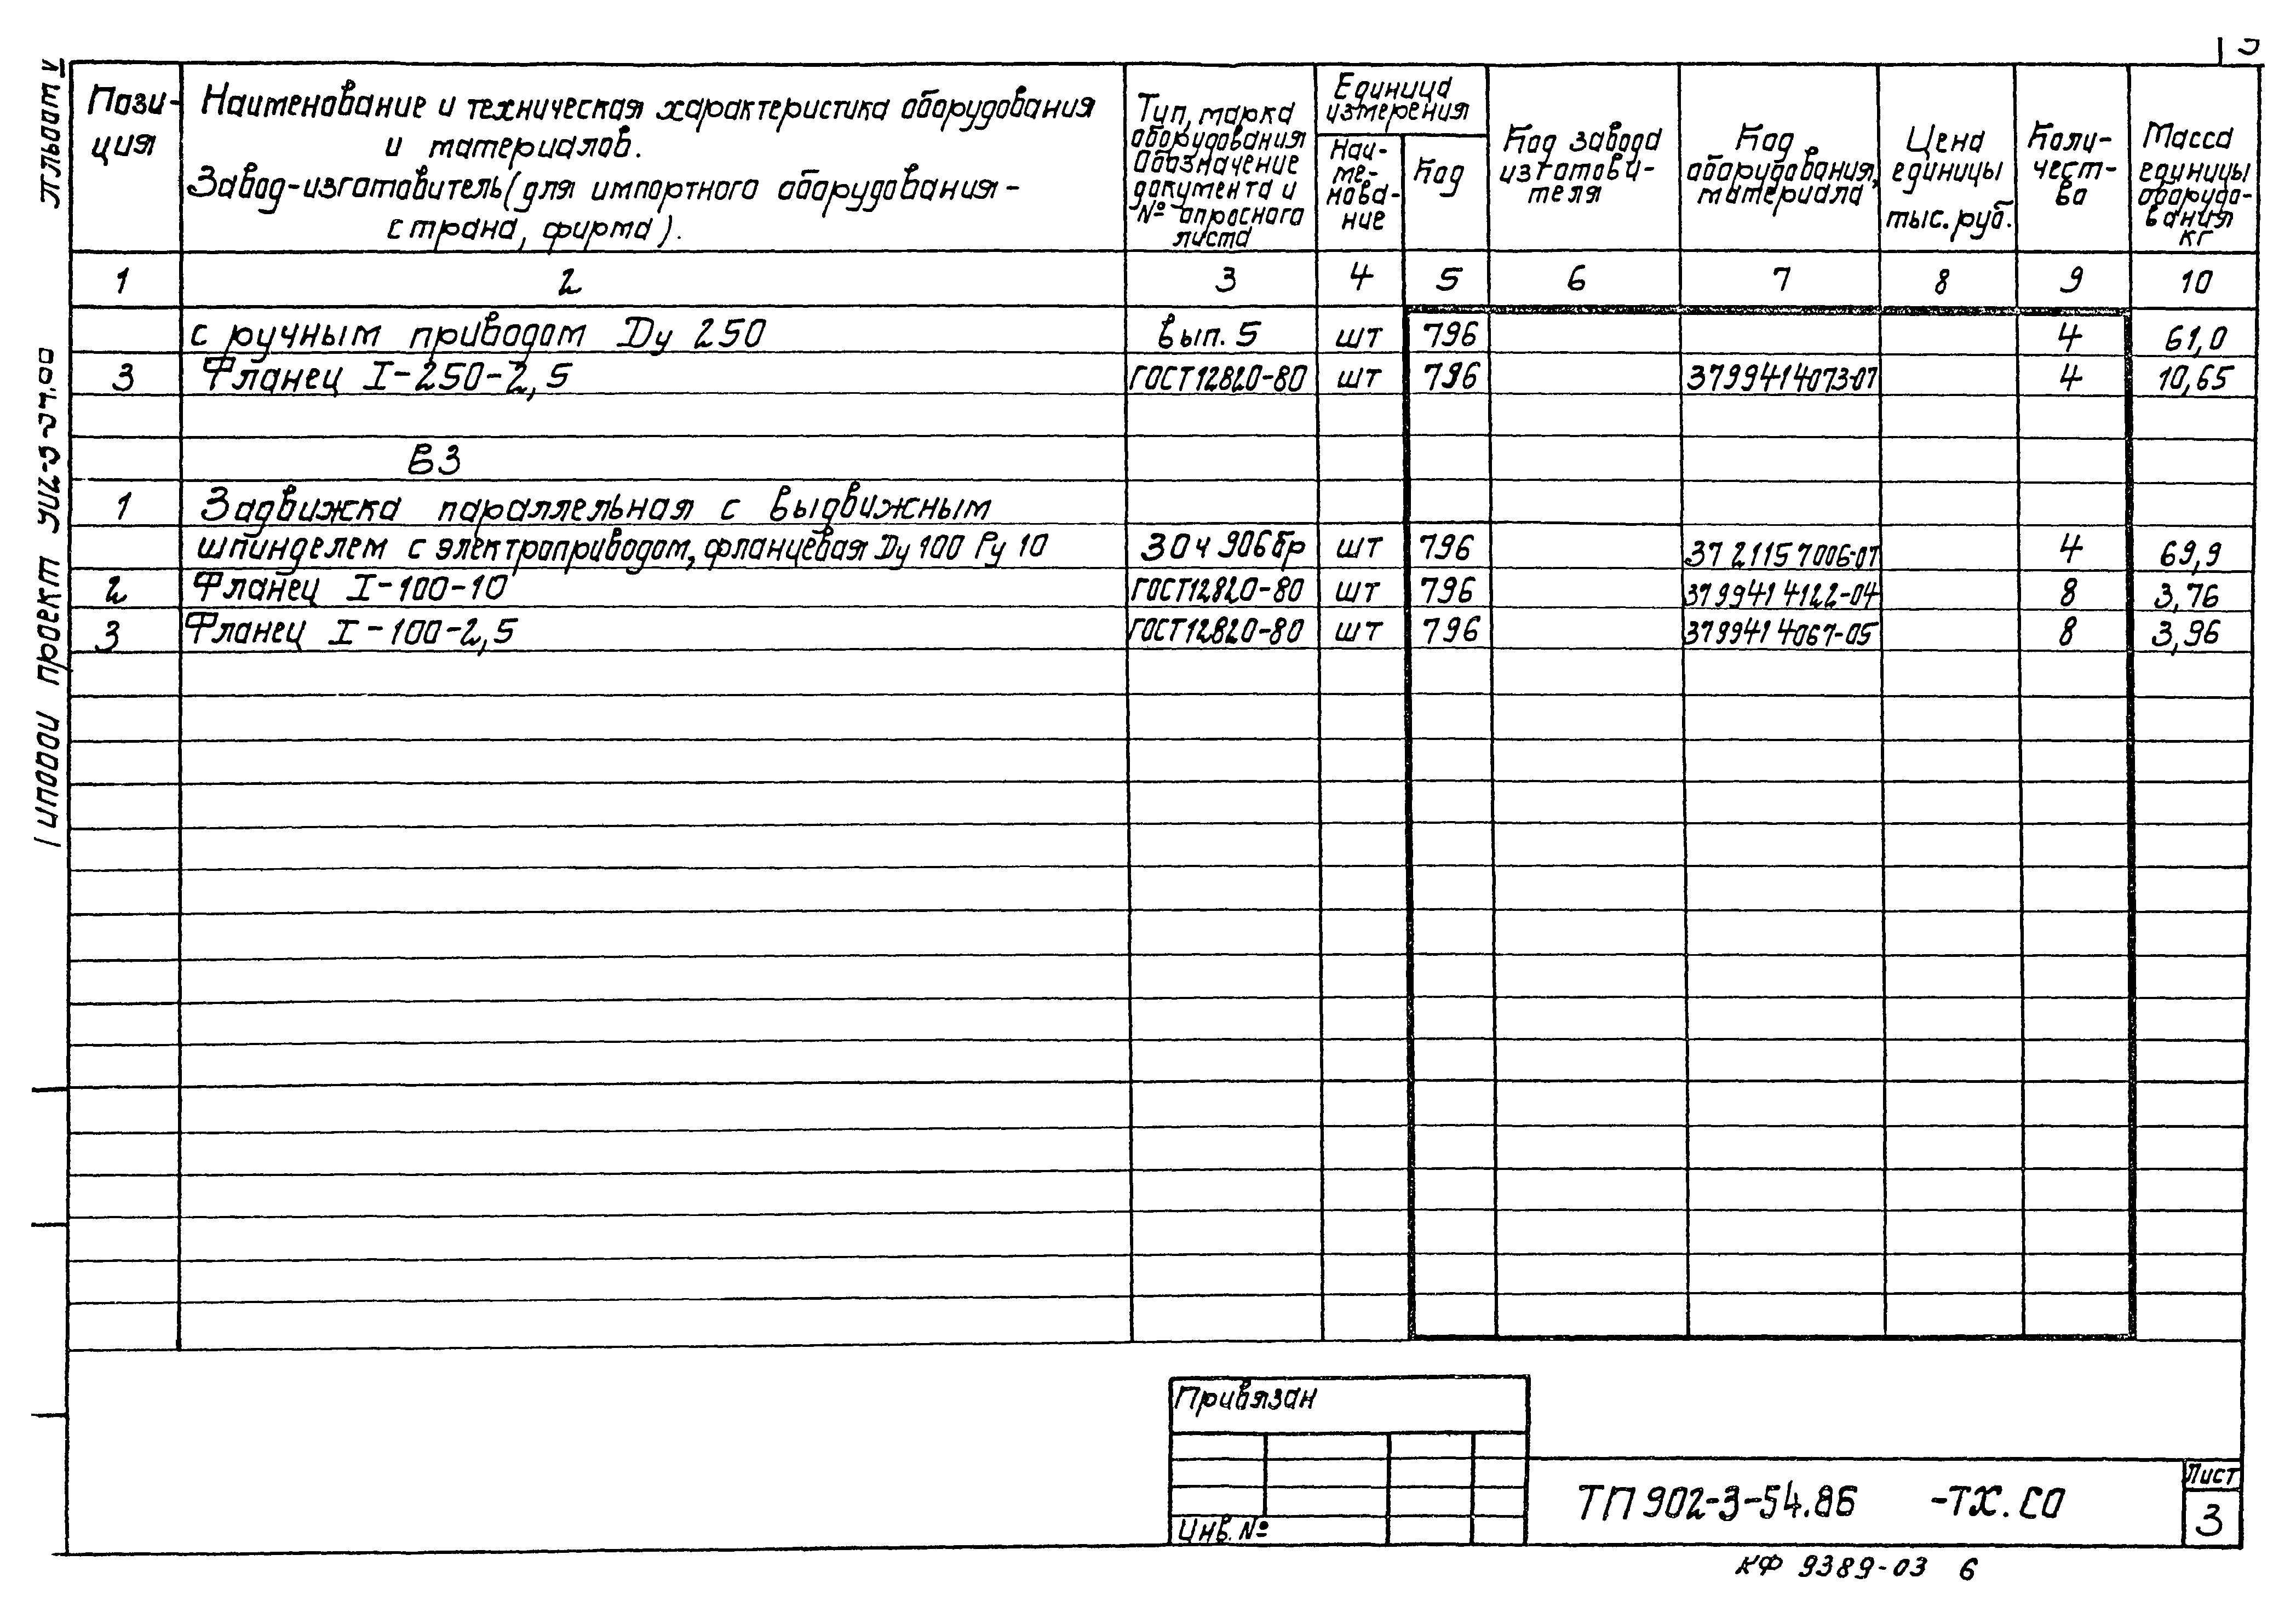 Пози-
ция
Наименование и техническая характеристика оборудования
и материалов.
Завод-изготовитель (для импортного оборудования-
страна, фирма).
Тип, марка
оборудования
Обозначение
документа и
№ опросного
листа
Единица
измерения
Наи-
ме-
нова-
ние
Код
Код завода
изготови-
теля
Код
оборудования,
материала
Цена
единицы
тыс. руб.
Коли-
чест-
во
Масса
единицы
оборудо-
вания
кг
1 2 3 4 5 6 7 8 9 10
с ручным приводом Dу 250 вып. 5 шт 796 4 61,0
3 Фланец I-250-2,5 ГОСТ 12820-80 шт 796 3799414073-07 4 10,65
В3
1 Задвижка параллельная с выдвижным
шпинделем с электроприводом, фланцевая Dу 100 Ру 10 30ч 906бр шт 796 37 2115 7006-07 4 69,9
2 Фланец I-100-10 ГОСТ 12820-80 шт 796 379941 4122-04 8 3,76
3 Фланец I-100-2,5 ГОСТ 12820-80 шт 796 379941 4067-05 8 3,96
Привязан
Инв. №
ТП 902-3-54.86 -ТХ.СО
Лист
3
КФ 9389-03 6
Типовой проект
Альбом V